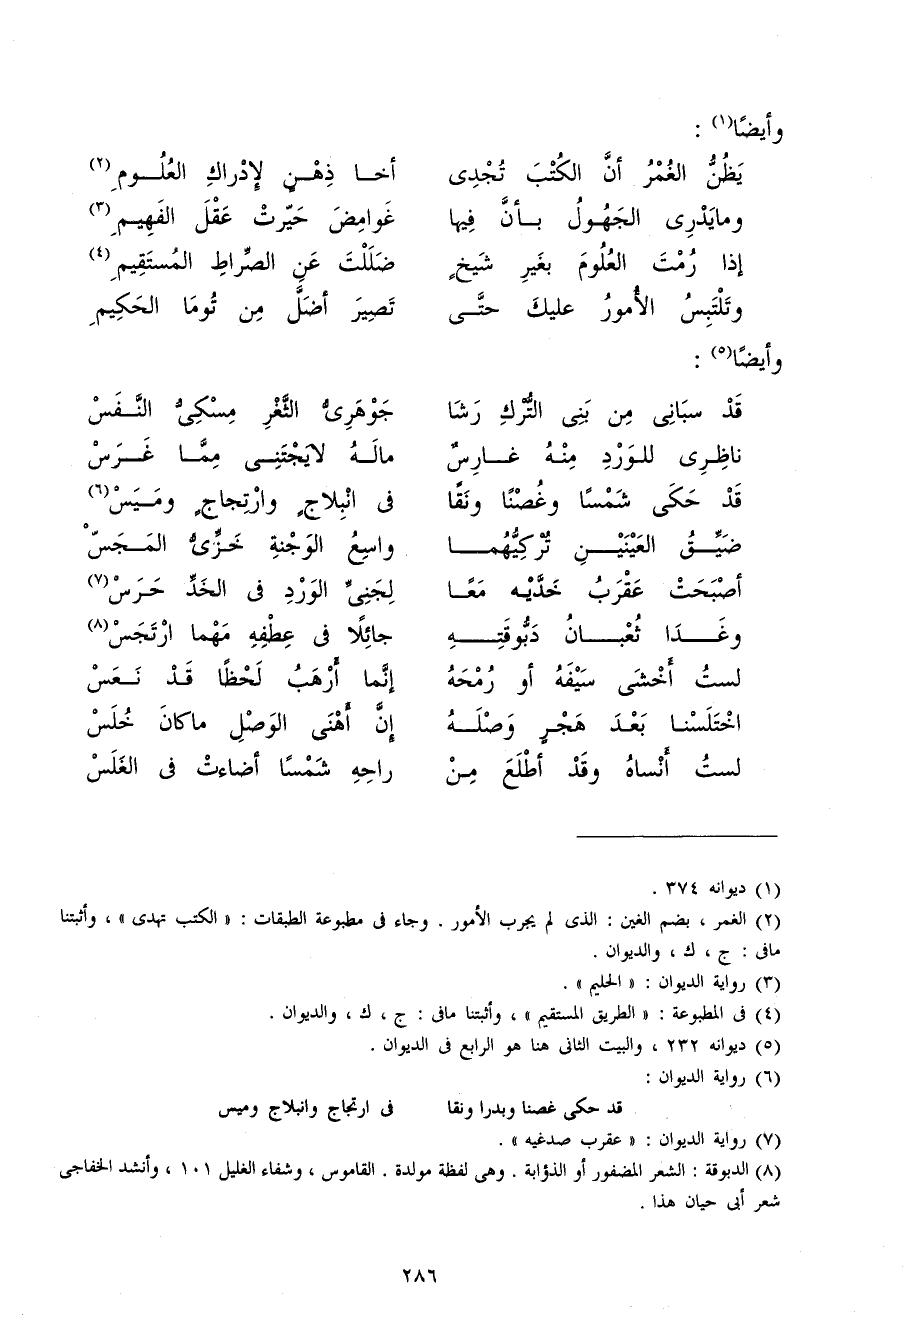 وأيضًا(١) :
يَظُنُّ الغُمْرُ أنَّ الكُتْبَ تُجْدِى أخـا ذِهْـنٍ لإِدْراكِ العُلُـومِ(٢)
ومايَدْرِى الجَهُولُ بـأنَّ فِيها غَوامِضَ حَيَّرتْ عَقْلَ الفَهِيمِ(٣)
إذا رُمْتَ العُلُومَ بغَيرِ شَيخٍ ضَلَلْتَ عَنِ الصِّراطِ المُسْتَقِيمِ(٤)
وتَلْتَبِسُ الأُمورُ عليكَ حتَّـى تَصِيرَ أضَلَّ مِن تُومَا الحَكِيمِ
وأيضًا(٥) :
قَدْ سبَانِى مِن بَنِى التُّرْكِ رَشَا جَوْهَرِىُّ الثَّغْرِ مِسْكِىُّ النَّفَسْ
ناظِرِى للوَرْدِ مِنْهُ غـارِسٌ مالَـهُ لايَجْتَنِـى مِمَّـا غَـرَسْ
قَدْ حَكَى شَمْسًا وغُصْنًا ونَقًا فى انْبِلاجٍ وارْتِجاجٍ ومَيَـسْ(٦)
ضَيِّـقُ العَيْنَيْـنِ تُرْكِيُّهُمـا واسِعُ الوَجْنةِ خَـزِّىُّ المَـجَسّْ
أصْبَحَتْ عَقْرَبُ خَدَّيْـه مَعًـا لِجَنِىِّ الوَرْدِ فى الخَدِّ حَـرَسْ(٧)
وغَـدَا ثُعْبـانُ دَبُّوقَتِـهِ جائِلًا فى عِطْفِهِ مَهْما ارْتَجَسْ(٨)
لستُ أَخْشَى سَيْفَهُ أو رُمْحَهُ إنَّما أَرْهَبُ لَحْظًا قَـدْ نَـعَسْ
اخْتَلَسْنـا بَعْدَ هَجْرٍ وَصْلَـهُ إنَّ أَهْنَى الوَصْلِ ماكانَ خُلَسْ
لستُ أَنْساهُ وقَدْ أطْلَعَ مِـنْ راحِهِ شَمْسًا أضاءتْ فى الغَلَسْ
(١) ديوانه ٣٧٤ .
(٢) الغمر ، بضم الغين : الذى لم يجرب الأمور . وجاء فى مطبوعة الطبقات : « الكتب تهدى » ، وأثبتنا
مافى : ج ، ك ، والديوان .
(٣) رواية الديوان : « الحليم » .
(٤) فى المطبوعة : « الطريق المستقيم » ، وأثبتنا مافى : ج ، ك ، والديوان .
(٥) ديوانه ٢٣٢ ، والبيت الثانى هنا هو الرابع فى الديوان .
(٦) رواية الديوان :
قد حكى غصنا وبدرا ونقا فى ارتجاج وانبلاج وميس
(٧) رواية الديوان : « عقرب صدغيه » .
(٨) الدبوقة : الشعر المضفور أو الذؤابة . وهى لفظة مولدة . القاموس ، وشفاء الغليل ١٠١ ، وأنشد الخفاجى
شعر أبى حيان هذا .
٢٨٦